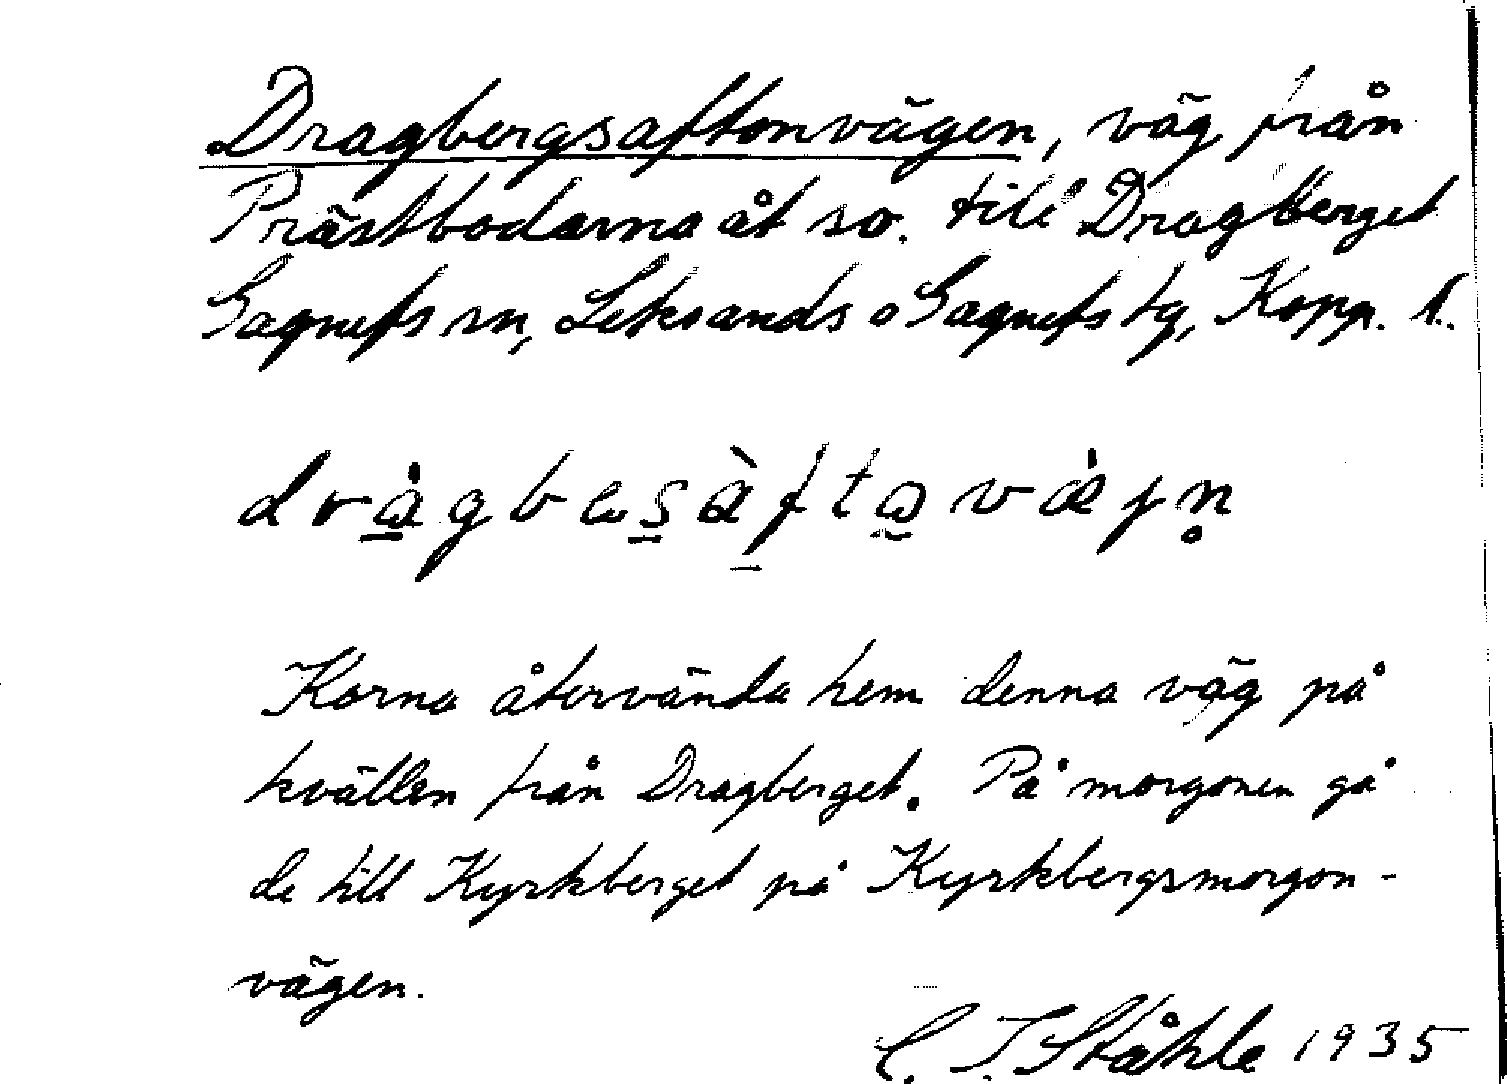 Dragbergsaftonvägen, väg från
Prästbodarna åt so. till Dragberget
Gagnefs sn, Leksands o Gagnefs tg, Kopp. l.
Korna återvända hem denna väg på
kvällen från Dragberget. På morgonen gå
de till Kyrkberget på Kyrkbergsmorgon-
vägen.
C. I. Ståhle 1935